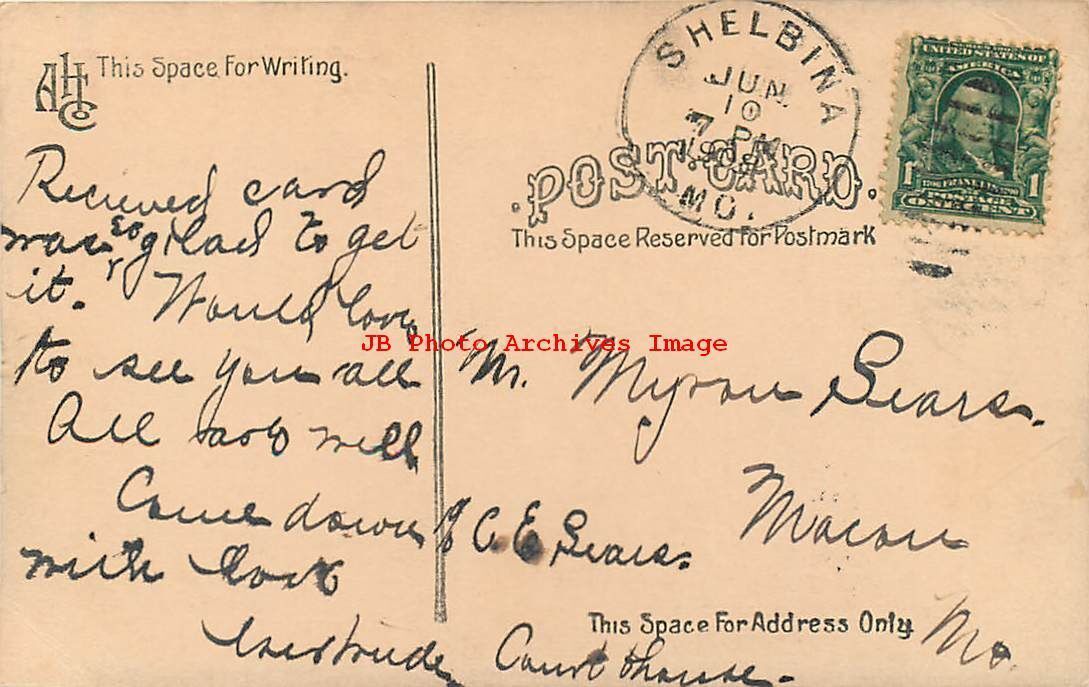 AHCo
This Space For Writing.
Recieved card
was so glad to get
it. Would love
to see you all
All are well
Come down
with love
Gertrude
SHELBINA
JUN
10
7 PM
1908
MO.
POST CARD.
This Space Reserved For Postmark
UNITED STATES OF
AMERICA
1 FRANKLIN 1
POSTAGE
ONE CENT
JB Photo Archives Image
Mr. Myron Sears.
Macon
% C. E. Sears.
This Space For Address Only
Mo.
Court house.